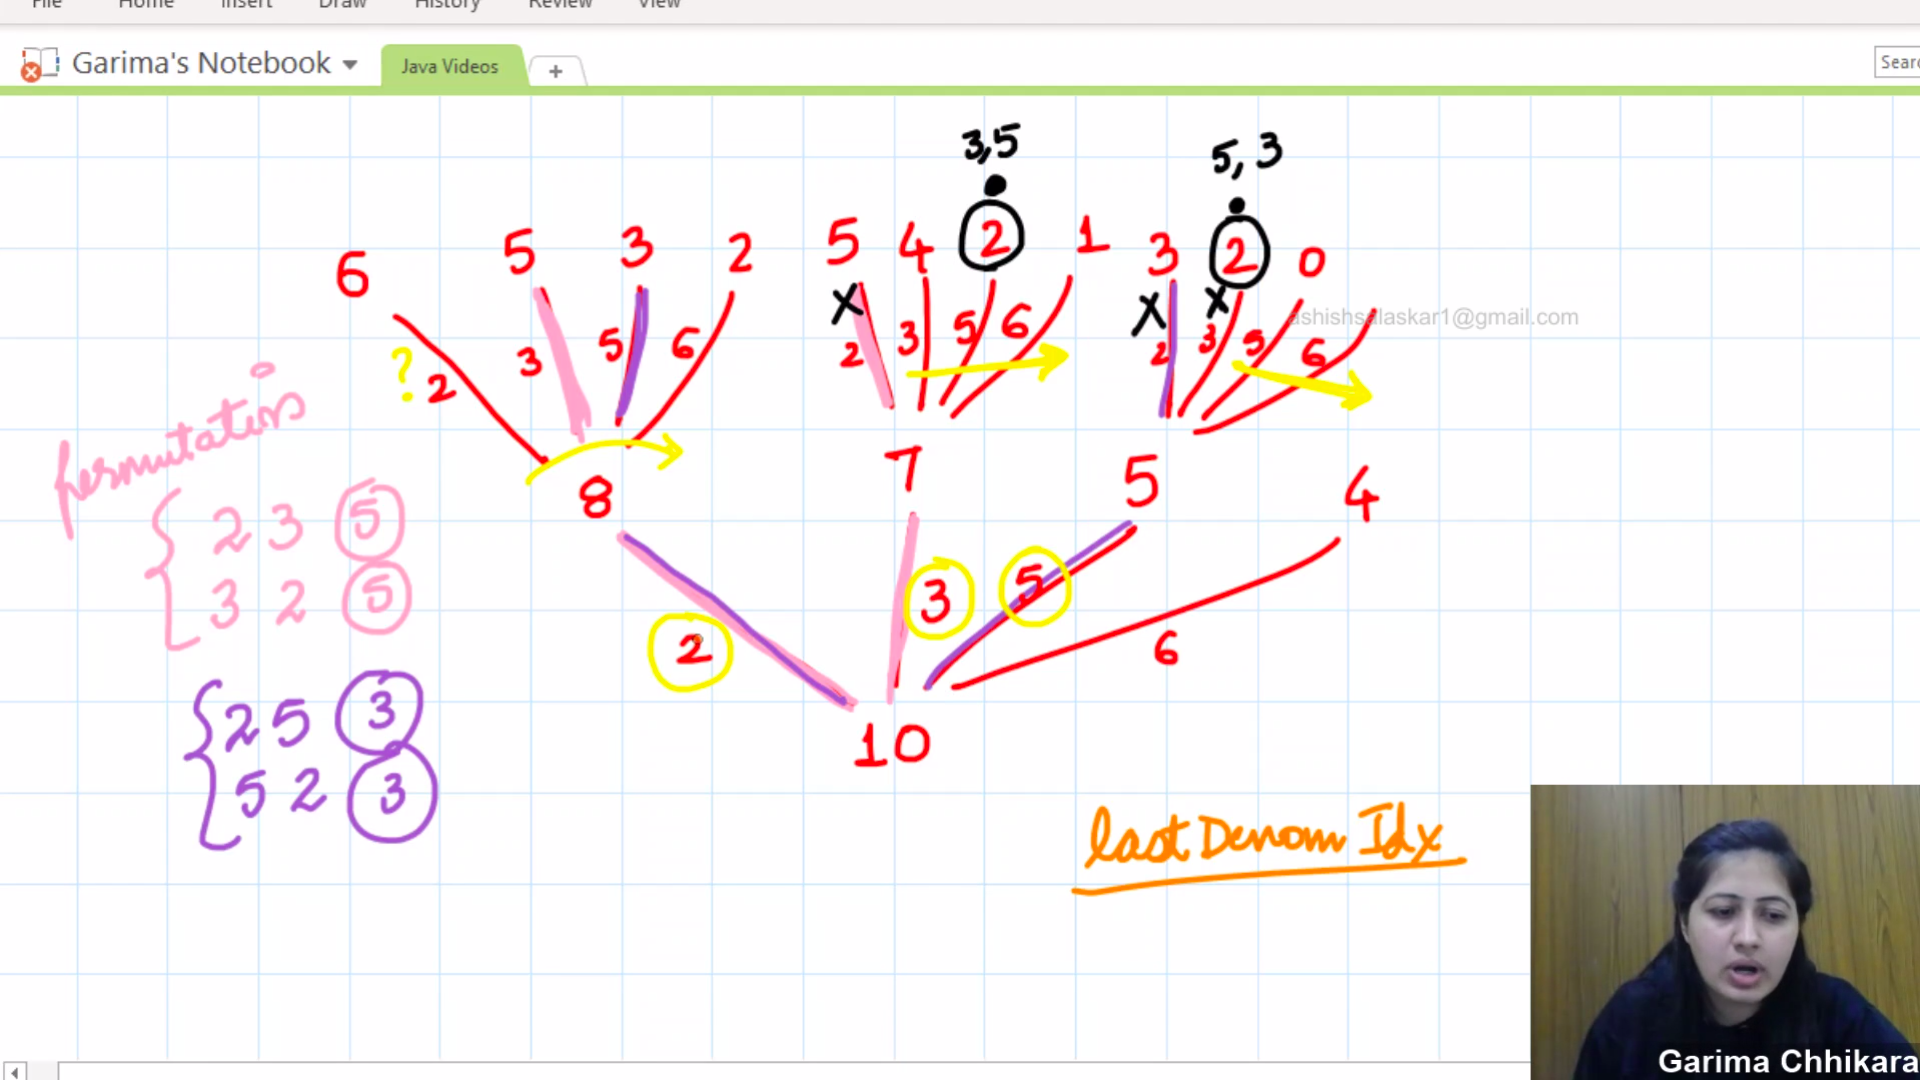 File Home Insert Draw History Review View
Garima's Notebook Java Videos +
Sear
3,5
5, 3
6 5 3 2 5 4 2 1 3 2 0
X X X
ashishsalaskar1@gmail.com
? 2 3 5 6 2 3 5 6 2 3 5 6
permutation
8 7 5 4
{ 2 3 5
3 2 5
2 3 5 6
{ 2 5 3
5 2 3
10
last Denom Idx
Garima Chhikara